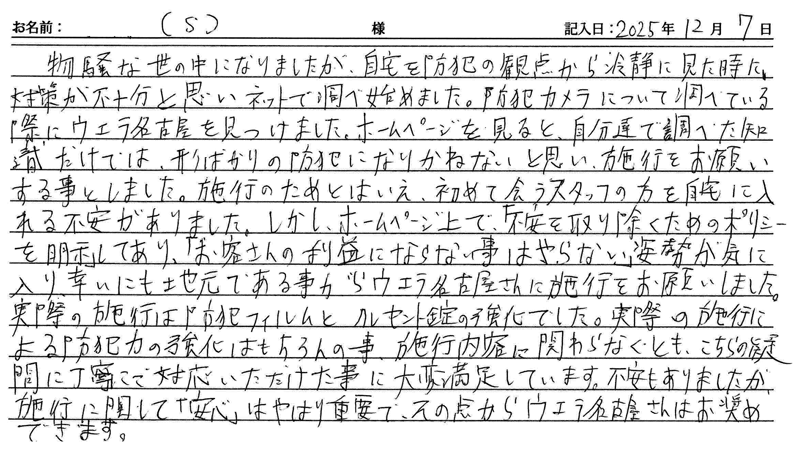 お名前： （S） 様 記入日：2025年12月7日
物騒な世の中になりましたが、自宅を防犯の観点から冷静に見た時に、
対策が不十分と思いネットで調べ始めました。防犯カメラについて調べている
際にウエラ名古屋を見つけました。ホームページを見ると、自分達で調べた知
識だけでは、形ばかりの防犯になりかねないと思い、施行をお願い
する事としました。施行のためとはいえ、初めて会うスタッフの方を自宅に入
れる不安がありました。しかし、ホームページ上で、「不安を取り除くためのポリシー
を明示」してあり、「お客さんの利益にならない事はやらない」姿勢が気に
入り、幸いにも地元である事からウエラ名古屋さんに施行をお願いしました。
実際の施行は防犯フィルムとクレセント錠の強化でした。実際の施行に
よる防犯力の強化はもちろんの事、施行内容に関わらなくとも、こちらの疑
問に丁寧にご対応いただけた事に大変満足しています。不安もありましたが、
施行に関して「安心」はやはり重要で、その点からウエラ名古屋さんはお奨め
できます。